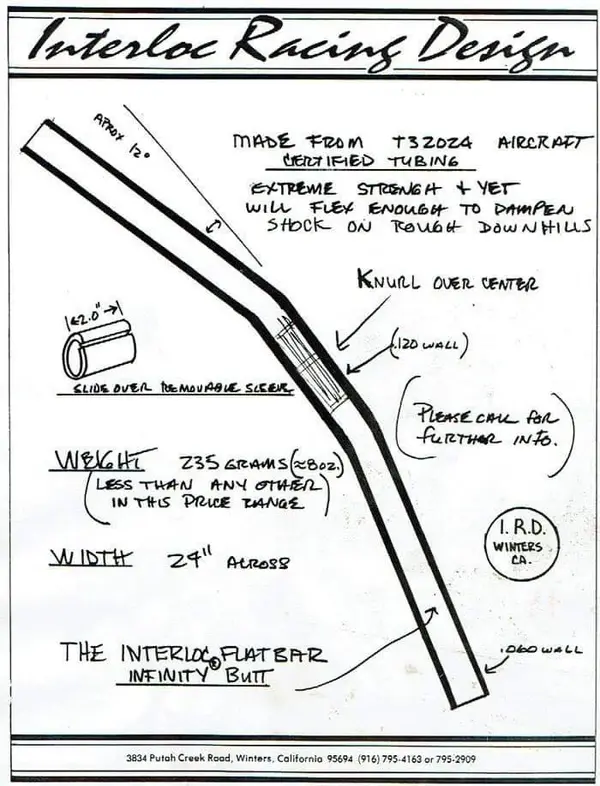 Interloc Racing Design
APROX 12°
MADE FROM T32024 AIRCRAFT
CERTIFIED TUBING
EXTREME STRENGTH & YET
WILL FLEX ENOUGH TO DAMPEN
SHOCK ON ROUGH DOWNHILLS
KNURL OVER CENTER
2.0"
.120 WALL)
SLIDE OVER REMOVABLE SLEEVE
(PLEASE CALL FOR
FURTHER INFO.)
WEIGHT 235 GRAMS (≈8oz.)
(LESS THAN ANY OTHER
IN THIS PRICE RANGE)
I.R.D.
WINTERS
CA.
WIDTH 24" ACROSS
.060 WALL
THE INTERLOC® FLATBAR
INFINITY BUTT
3834 Putah Creek Road, Winters, California 95694 (916) 795-4163 or 795-2909